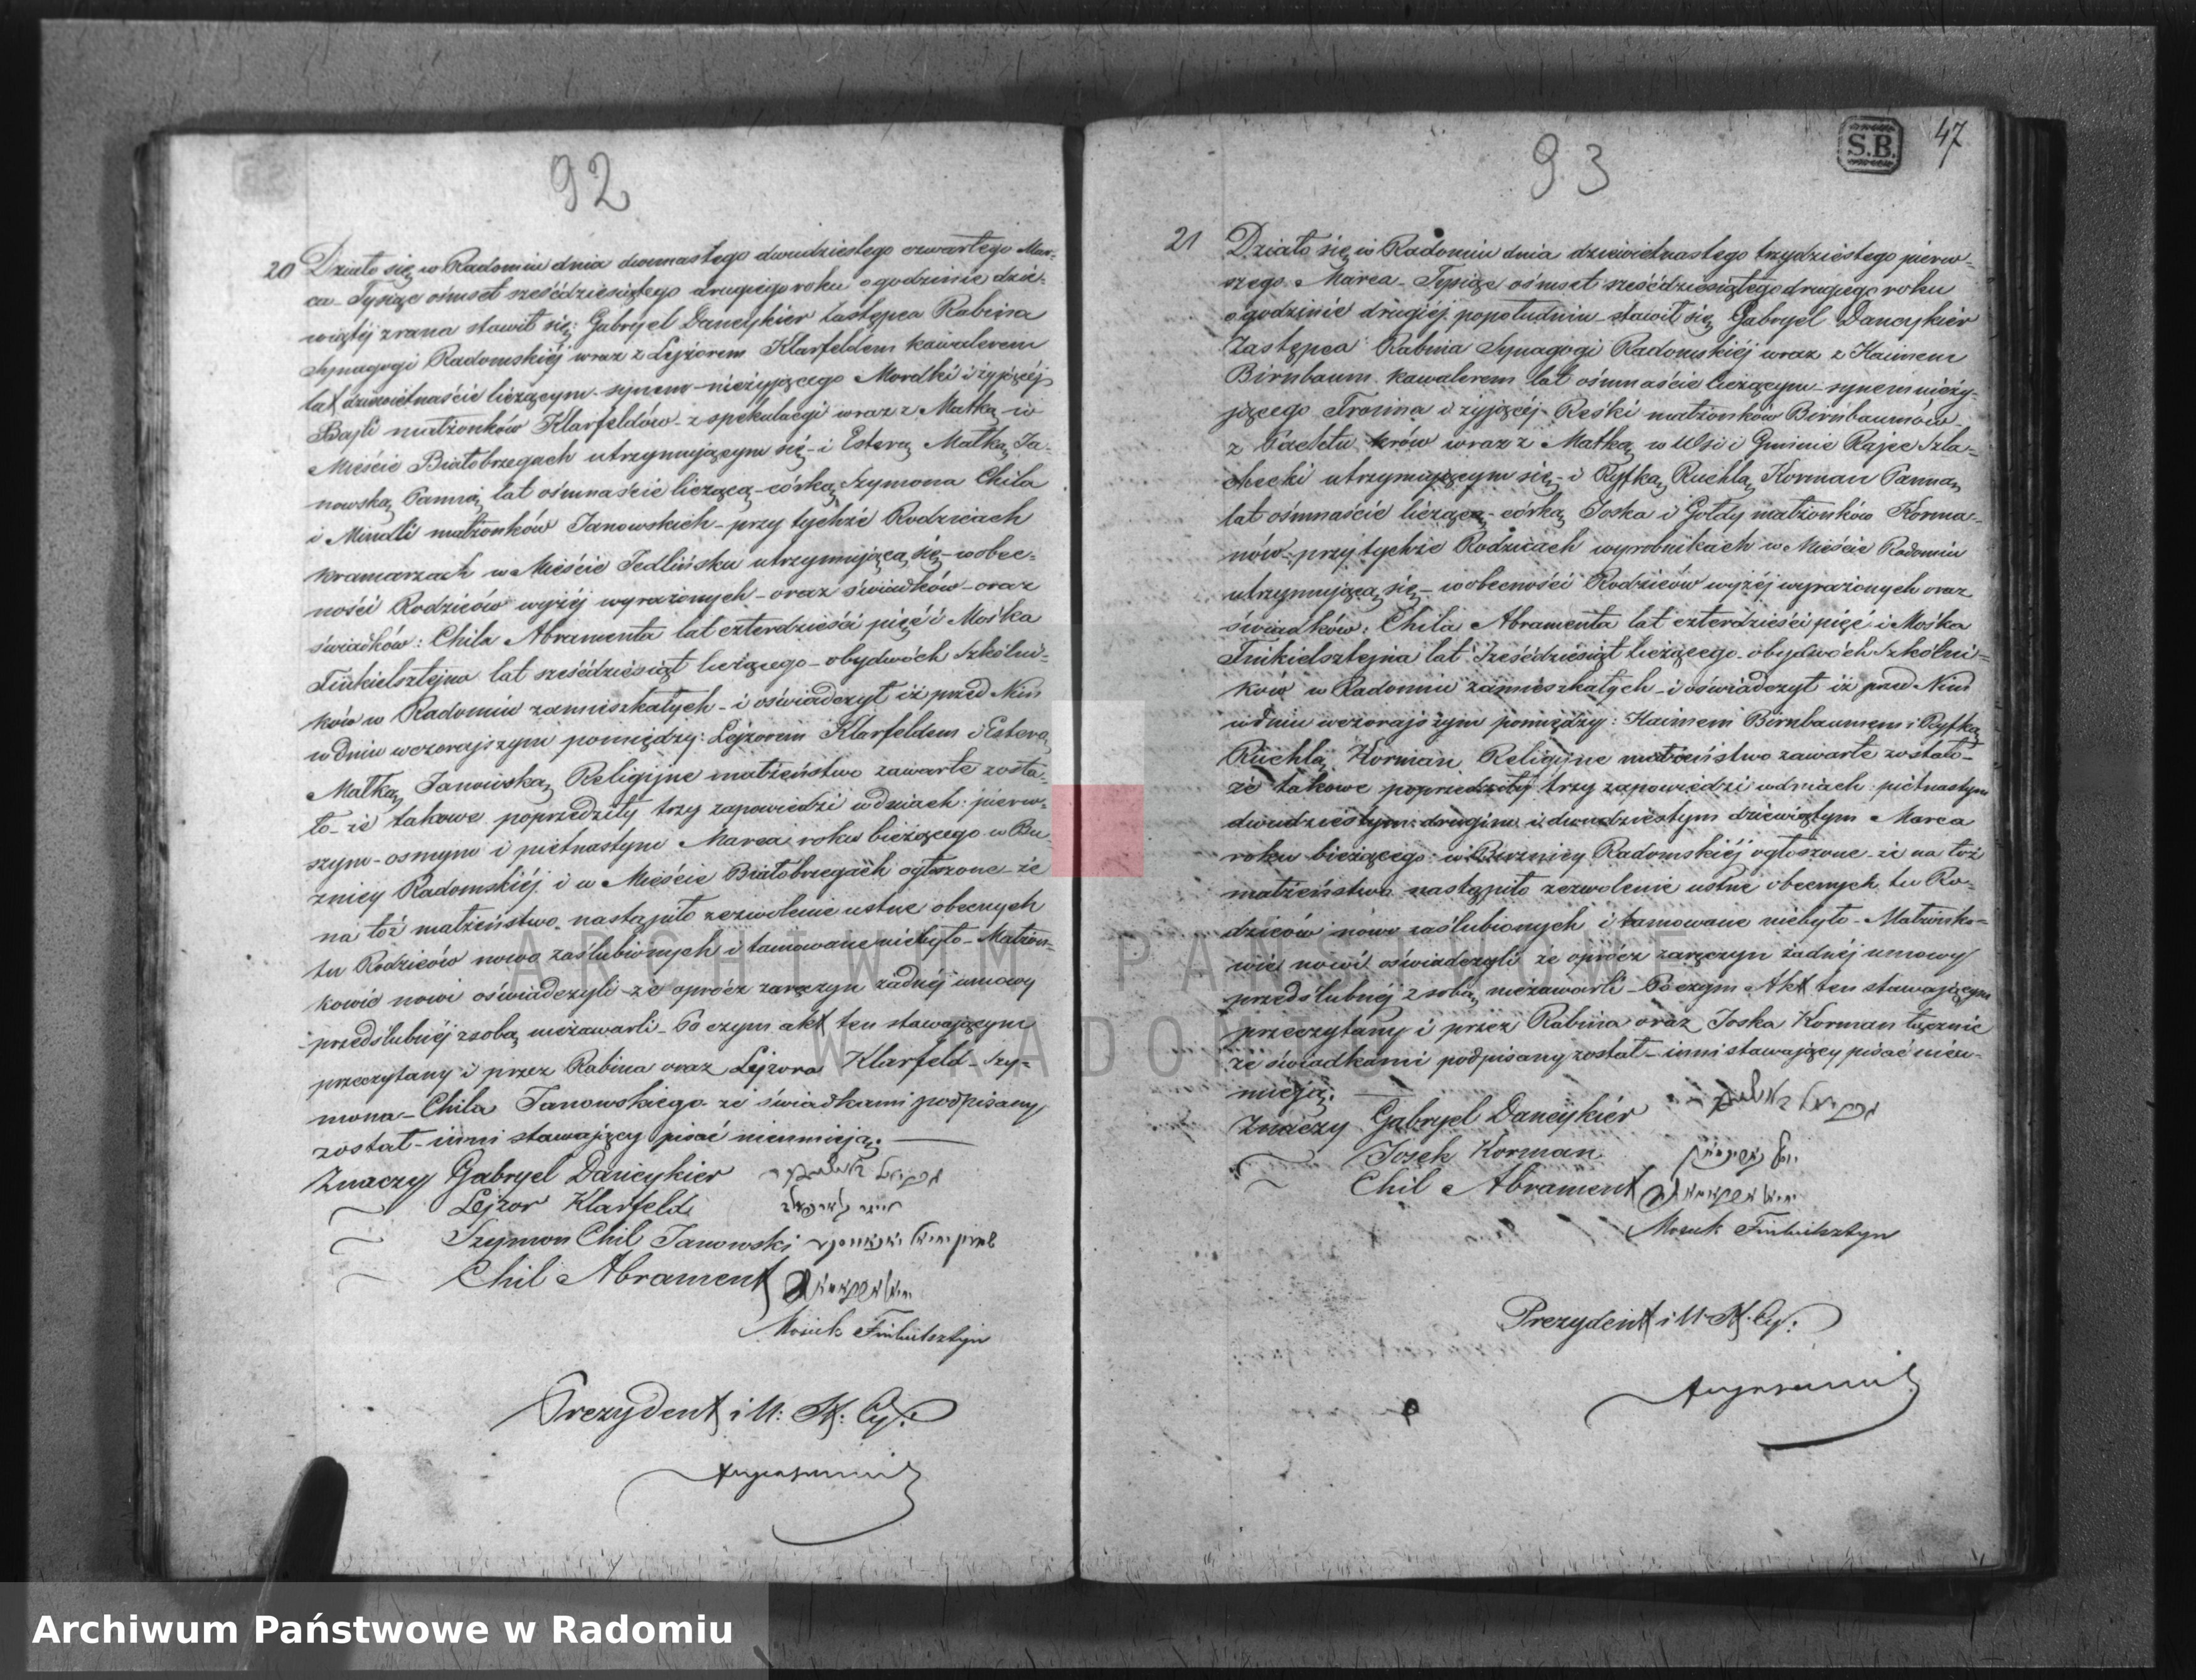 92
20 Działo się w Radomiu dnia dwunastego dwudziestego czwartego Mar-
ca Tysiąc ośmset sześćdziesiątego drugiego roku o godzinie dzie-
wiątej zrana stawił się: Gabryel Dancykier Zastępca Rabina
Synagogi Radomskiéj wraz z Lejzorem Klarfeldem kawalerem
lat dziewietnaście liczącym synem nieżyjącego Mordki i żyjącéj
Bajli małżonków Klarfeldów z spekulacyi wraz z Matką w
Mieście Białobrzegach utrzymującym się i Esterą Małką Ja-
nowską Panną lat ośmnaście liczącą córką Szymona Chila
i Mindli małżonków Janowskich przy tychże Rodzicach
kramarzach w Mieście Jedlińsku utrzymującą się w obec-
ności Rodziców wyżéj wyrażonych oraz świadków oraz
świadków: Chila Abramenta lat czterdzieści pięć i Mośka
Finkielsztejna lat sześćdziesiąt liczącego obydwóch Szkólni-
ków w Radomiu zamieszkałych i oświadczył iż przed Nim
w dniu wczorajszym pomiędzy: Lejzorem Klarfeldem i Esterą
Małką Janowską Religijne małżeństwo zawarte zosta-
ło że takowe poprzedziły trzy zapowiedzi w dniach: pierw-
szym ósmym i pietnastym Marca roku bieżącego w Bu-
żnicy Radomskiéj i w Mieście Białobrzegach ogłoszone że
na toż małżeństwo nastąpiło zezwolenie ustne obecnych
tu Rodziców nowo zaślubionych i tamowane niebyło Małżon-
kowie nowi oświadczyli że oprócz zaręczyn żadnéj umowy
przedślubnéj z sobą niezawarli Po czym akt ten stawającym
przeczytany i przez Rabina oraz Lejzora Klarfeld Szy-
mona Chila Janowskiego ze świadkami podpisany
został inni stawający pisać nieumieją.
Znaczy Gabryel Dancykier
Lejzor Klarfeld
Szymon Chil Janowski
Chil Abrament
Mosiek Finkielsztyn
Prezydent i U. S. Cy.
93
S.B.
47
21 Działo się w Radomiu dnia dziewietnastego trzydziestego pierw-
szego Marca Tysiąc ośmset sześćdziesiątego drugiego roku
o godzinie drugiéj popołudniu stawił się Gabryel Dancykier
Zastępca Rabina Synagogi Radomskiéj wraz z Haimem
Birnbaum kawalerem lat ośmnaście liczącym synem nieży-
jącego Froima i żyjącéj Reśki małżonków Birnbaumów
z Pachtu krów wraz z Matką w Wsi i Gminie Rajec Szla-
checki utrzymującym się i Ryfką Ruchlą Korman Panną
lat ośmnaście liczącą córką Joska i Gołdy małżonków Korma-
nów przy tychże Rodzicach wyrobnikach w Mieście Radomiu
utrzymującą się w obecności Rodziców wyżéj wyrażonych oraz
świadków: Chila Abramenta lat czterdzieści pięć i Mośka
Finkielsztejna lat Sześćdziesiąt liczącego obydwóch Szkólni-
ków w Radomiu zamieszkałych i oświadczył iż przed Nim
w dniu wczorajszym pomiędzy: Haimem Birnbaumem i Ryfką
Ruchlą Korman Religijne małżeństwo zawarte zostało
że takowe poprzedziły trzy zapowiedzi w dniach pietnastym
dwudziestym drugim i dwudziestym dziewiątym Marca
roku bieżącego w Bużnicy Radomskiéj ogłoszone że na toż
małżeństwo nastąpiło zezwolenie ustne obecnych tu Ro-
dziców nowo zaślubionych i tamowane niebyło Małżonko-
wie nowi oświadczyli że oprócz zaręczyn żadnéj umowy
przedślubnéj z sobą niezawarli Po czym Akt ten stawającym
przeczytany i przez Rabina oraz Joska Korman łącznie
ze świadkami podpisany został inni stawający pisać nieu-
mieją.
Znaczy Gabryel Dancykier
Josek Korman
Chil Abrament
Mosiek Finkielsztyn
Prezydent i U. S. Cy.
ARCHIWUM PAŃSTWOWE
W RADOMIU
Archiwum Państwowe w Radomiu